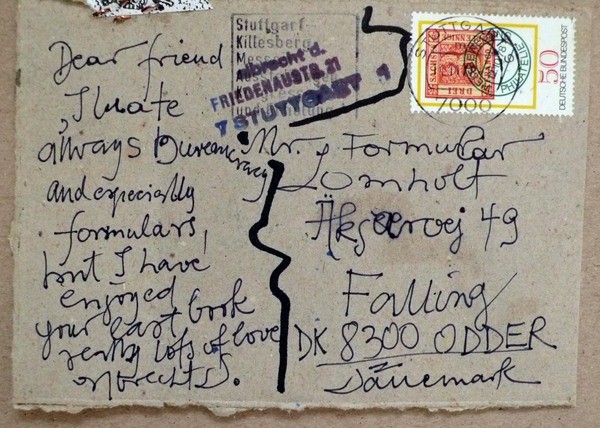 Dear friend
I hate
always bureaucracy
and especially
formulars,
but I have
enjoyed
your last book
really lots of love
albrecht d.
Stuttgart-
Killesberg
albrecht d.
FRIEDENAUSTR. 21
7 STUTTGART 1
STUTTGART
7000
DREI
SACHSEN
50
DEUTSCHE BUNDESPOST
Mr. Formular
Lomholt
49
Falling
DK 8300 ODDER
Dänemark